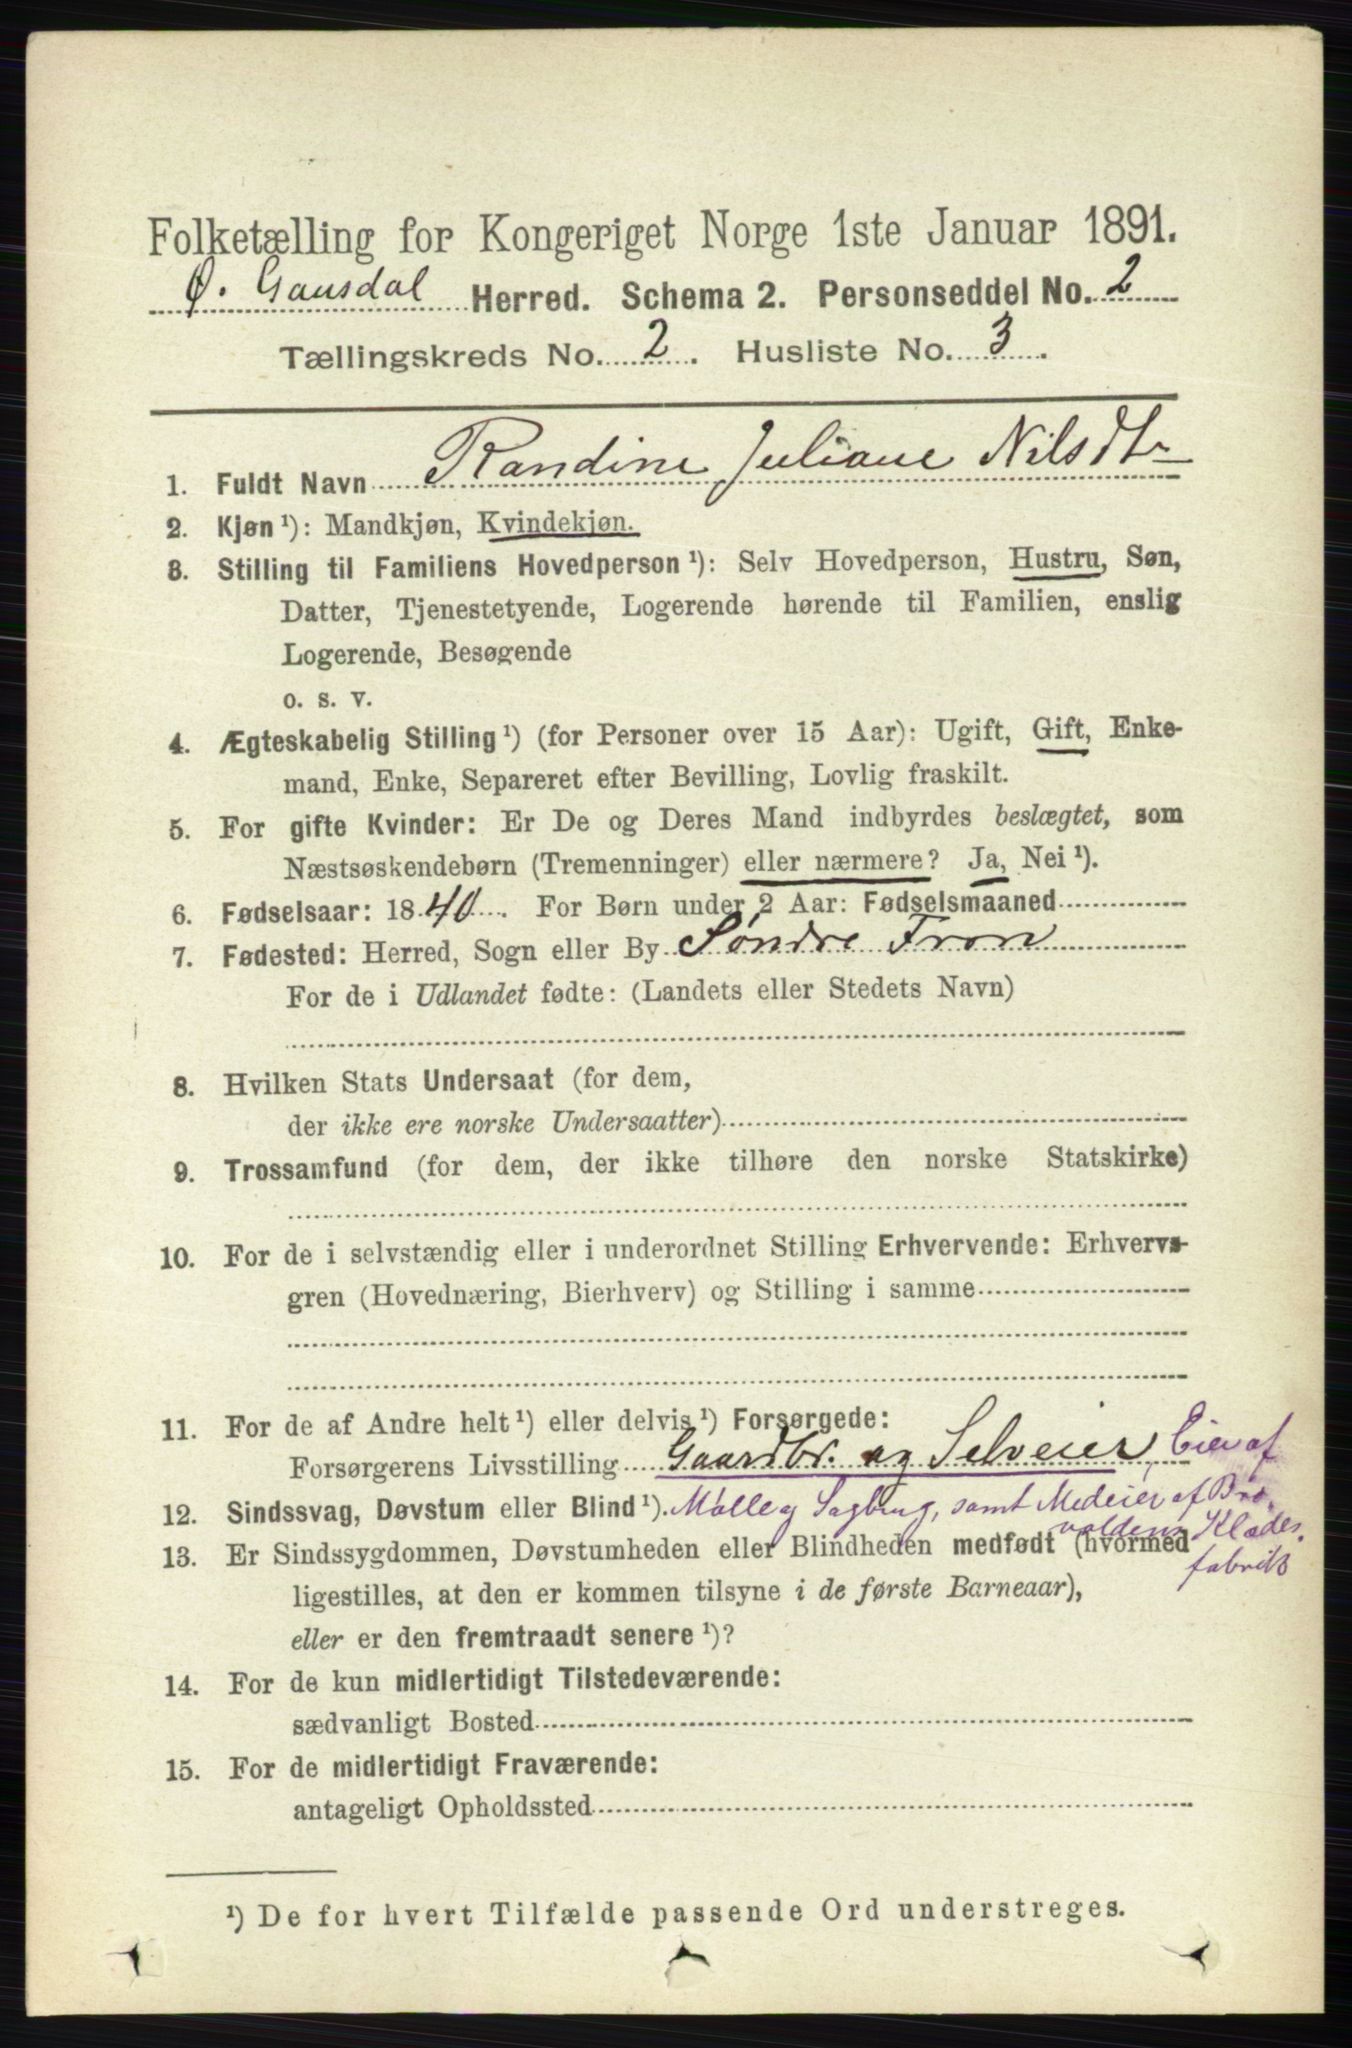 Folketælling for Kongeriget Norge 1ste Januar 1891.
Ø. Gausdal Herred. Schema 2. Personseddel No. 2
Tællingskreds No. 2. Husliste No. 3.
1. Fuldt Navn Randine Juliane Nilsdtr
2. Kjøn ¹): Mandkjøn, Kvindekjøn.
3. Stilling til Familiens Hovedperson ¹): Selv Hovedperson, Hustru, Søn,
Datter, Tjenestetyende, Logerende hørende til Familien, enslig
Logerende, Besøgende
o. s. v.
4. Ægteskabelig Stilling ¹) (for Personer over 15 Aar): Ugift, Gift, Enke-
mand, Enke, Separeret efter Bevilling, Lovlig fraskilt.
5. For gifte Kvinder: Er De og Deres Mand indbyrdes beslægtet, som
Næstsøskendebørn (Tremenninger) eller nærmere? Ja, Nei ¹).
6. Fødselsaar: 1840. For Børn under 2 Aar: Fødselsmaaned
7. Fødested: Herred, Sogn eller By Søndre Fron
For de i Udlandet fødte: (Landets eller Stedets Navn)
8. Hvilken Stats Undersaat (for dem,
der ikke ere norske Undersaatter)
9. Trossamfund (for dem, der ikke tilhøre den norske Statskirke)
10. For de i selvstændig eller i underordnet Stilling Erhvervende: Erhvervs-
gren (Hovednæring, Bierhverv) og Stilling i samme
11. For de af Andre helt ¹) eller delvis ¹) Forsørgede:
Forsørgerens Livsstilling Gaardbr. og Selveier, Eier af
12. Sindssvag, Døvstum eller Blind ¹). Mølle og Sagbrug, samt Medeier af Bro-
valdens Klædes.
fabrik
13. Er Sindssygdommen, Døvstumheden eller Blindheden medfødt (hvormed
ligestilles, at den er kommen tilsyne i de første Barneaar),
eller er den fremtraadt senere ¹)?
14. For de kun midlertidigt Tilstedeværende:
sædvanligt Bosted
15. For de midlertidigt Fraværende:
antageligt Opholdssted
¹) De for hvert Tilfælde passende Ord understreges.